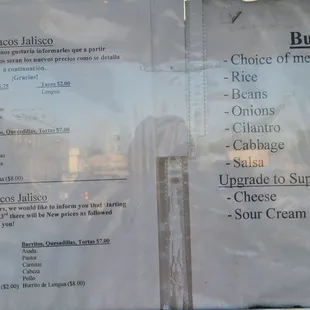 acos Jalisco
nos gustaría informarles que a partir
os seran los nuevos precios como se detalla
a continuación.
¡Gracias!
Tacos $2.00
Lengua
Quesadillas, Tortas $7.00
($8.00)
acos Jalisco
rs, we would like to inform you that starting
3rd there will be New prices as followed
you!
Burritos, Quesadillas, Tortas $7.00
Asada
Pastor
Carnitas
Cabeza
Pollo
($2.00) Burrito de Lengua ($8.00)
Bu
- Choice of me
- Rice
- Beans
- Onions
- Cilantro
- Cabbage
- Salsa
Upgrade to Sup
- Cheese
- Sour Cream